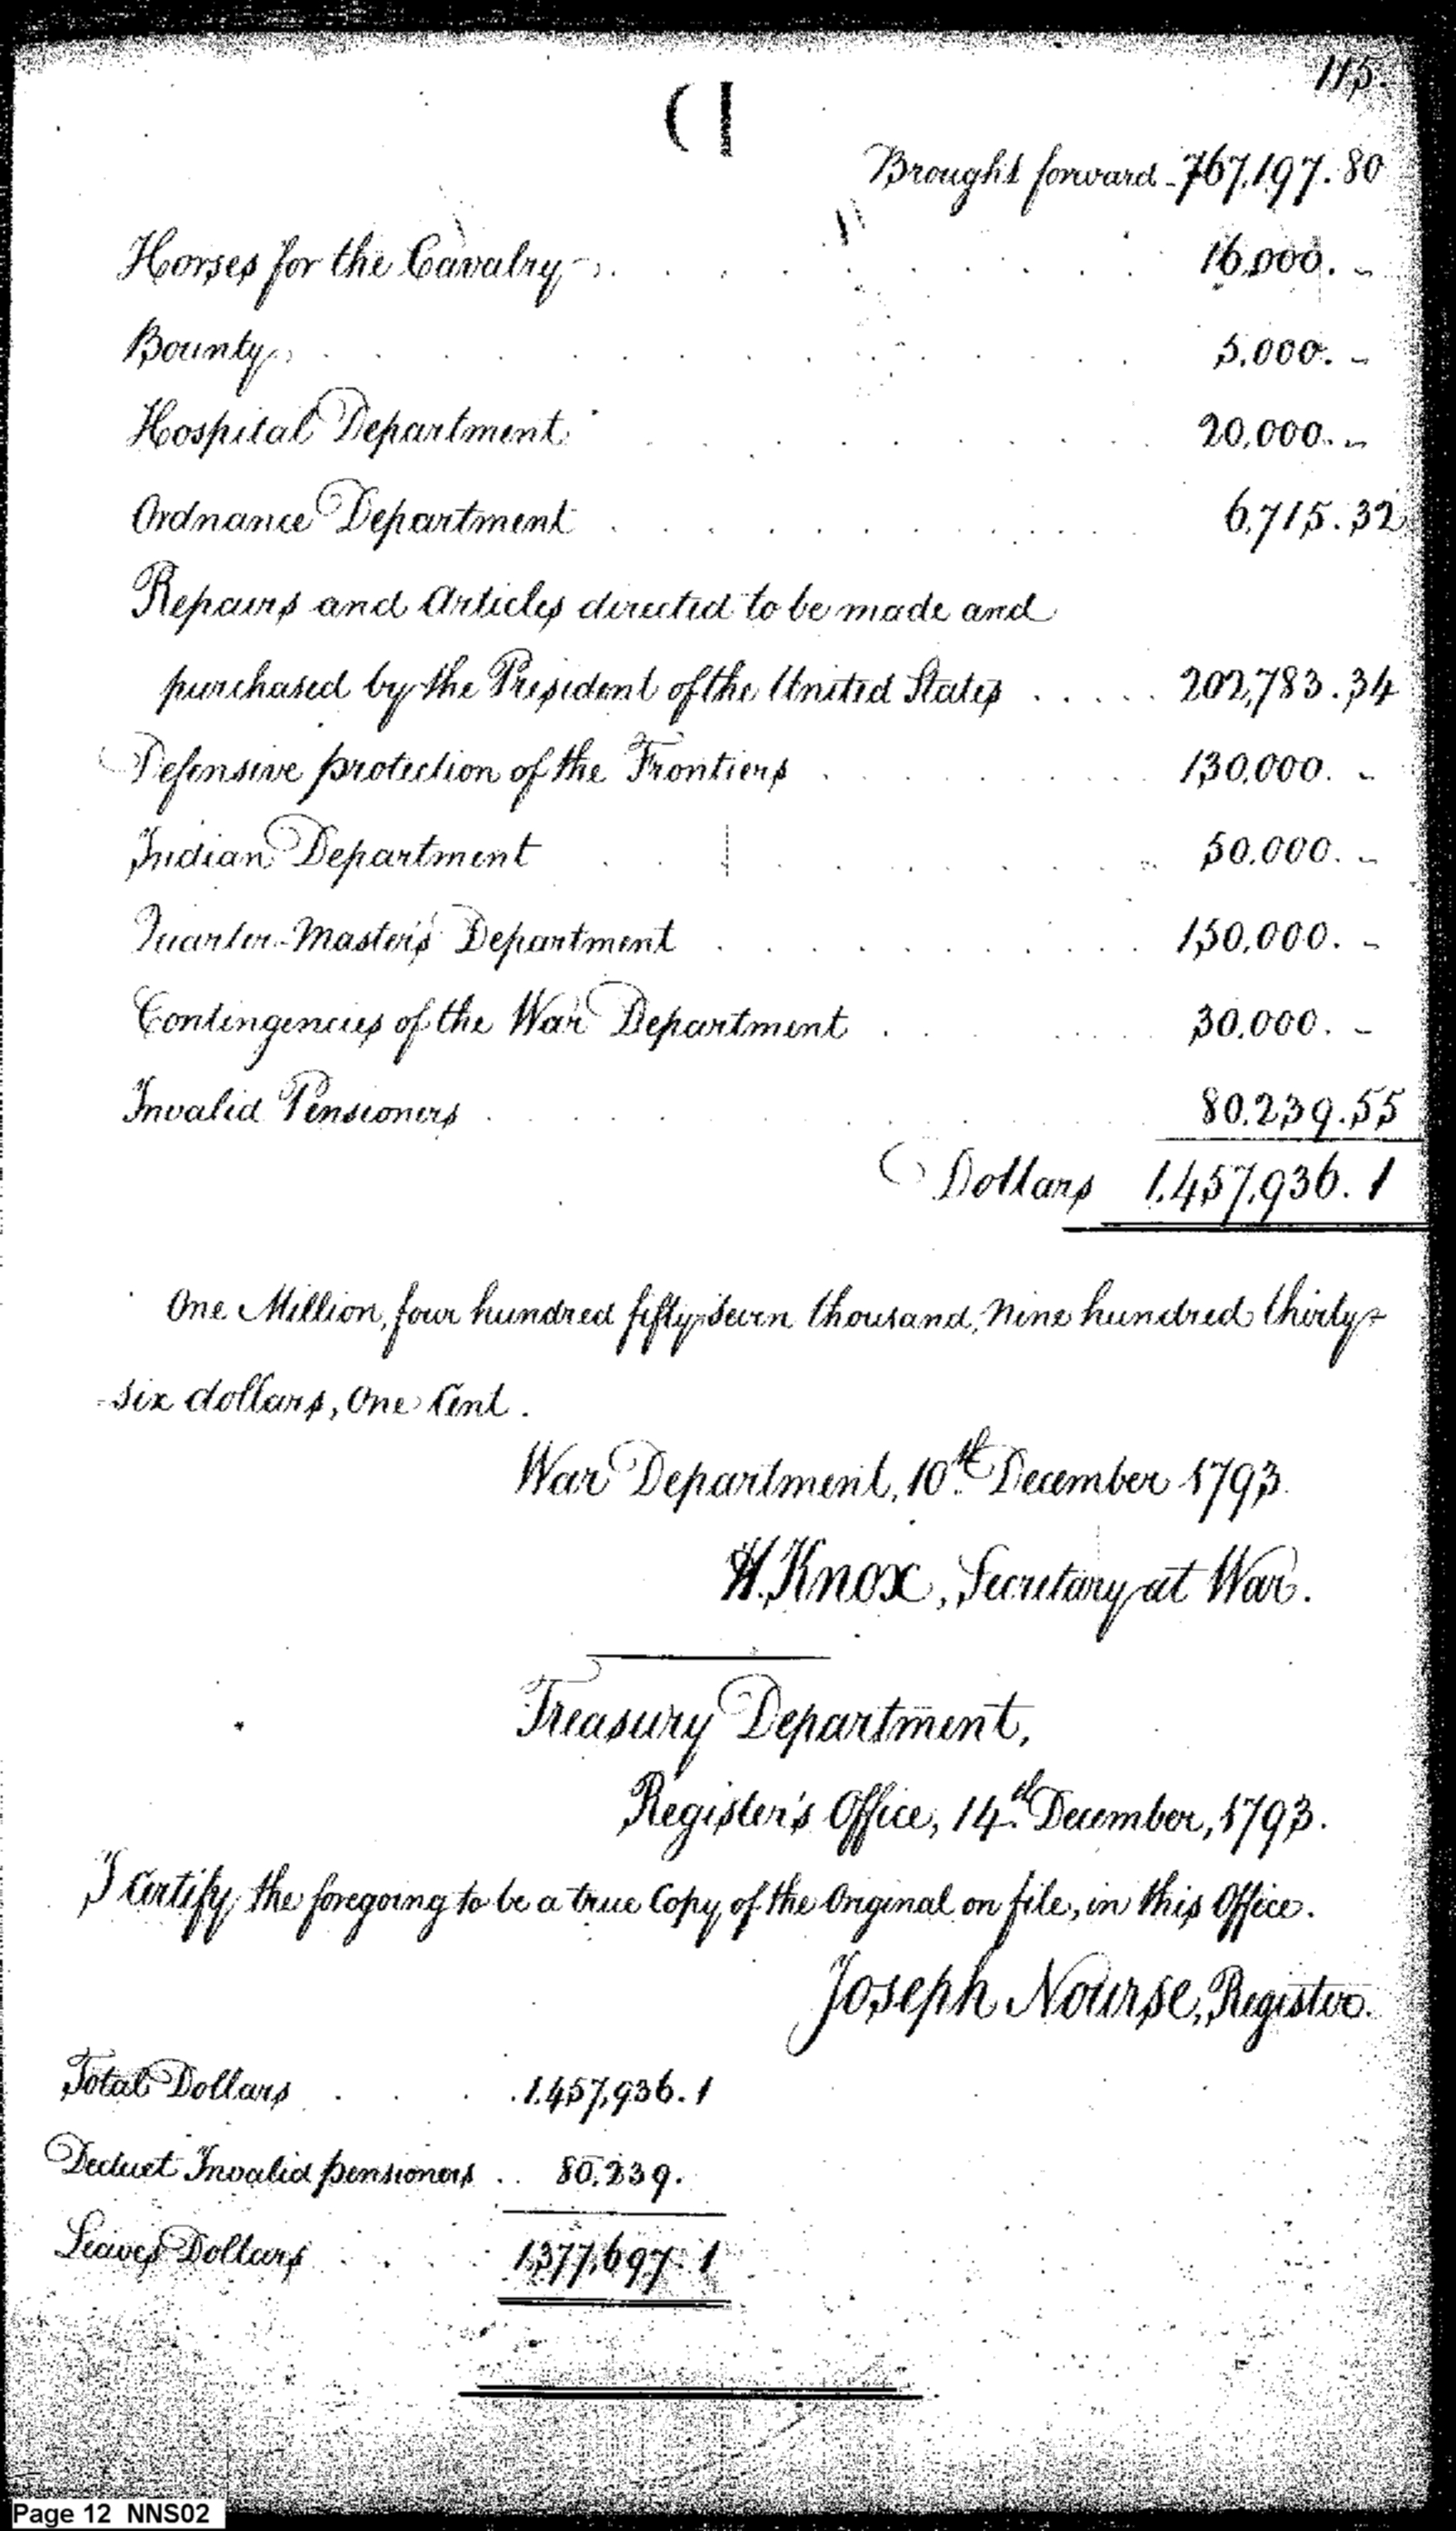 115.
Brought forward - 767,197.80
Horses for the Cavalry . . . . . . . . 16,000. -
Bounty . . . . . . . . . . 5,000. -
Hospital Department . . . . . . . . 20,000. -
Ordnance Department . . . . . . . . 6,715.32
Repairs and Articles directed to be made and
purchased by the President of the United States . . . . . 202,783.34
Defensive protection of the Frontiers . . . . . . . . 130,000. -
Indian Department . . . . . . . . 50.000. -
Quarter-Master's Department . . . . . . . . 150,000. -
Contingencies of the War Department . . . . . . 30.000. -
Invalid Pensioners . . . . . . . . 80.239.55
Dollars 1.457,936. 1
One Million, four hundred fifty seven thousand, Nine hundred thirty-
-six dollars, One Cent.
War Department, 10th December 1793.
H. Knox, Secretary at War.
Treasury Department,
Register's Office, 14th December, 1793.
I Certify the foregoing to be a true Copy of the Original on file, in this Office.
Joseph Nourse, Register.
Total Dollars . . . . 1.457,936. 1
Deduct Invalid pensioners . . 80.239.
Leaves Dollars . . . . 1,377,697. 1
Page 12 NNS02